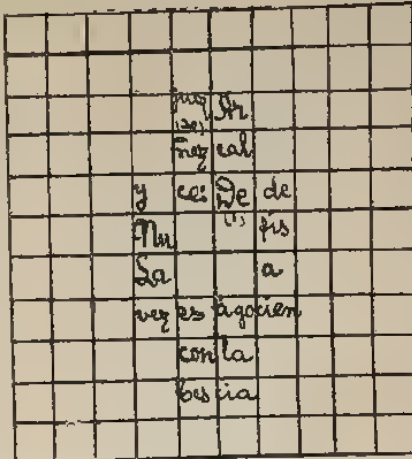 juez Ar
(20)
nez cal
y ces De de
(1)
Nu fis
La a
vez es agocien
con la
bes cia